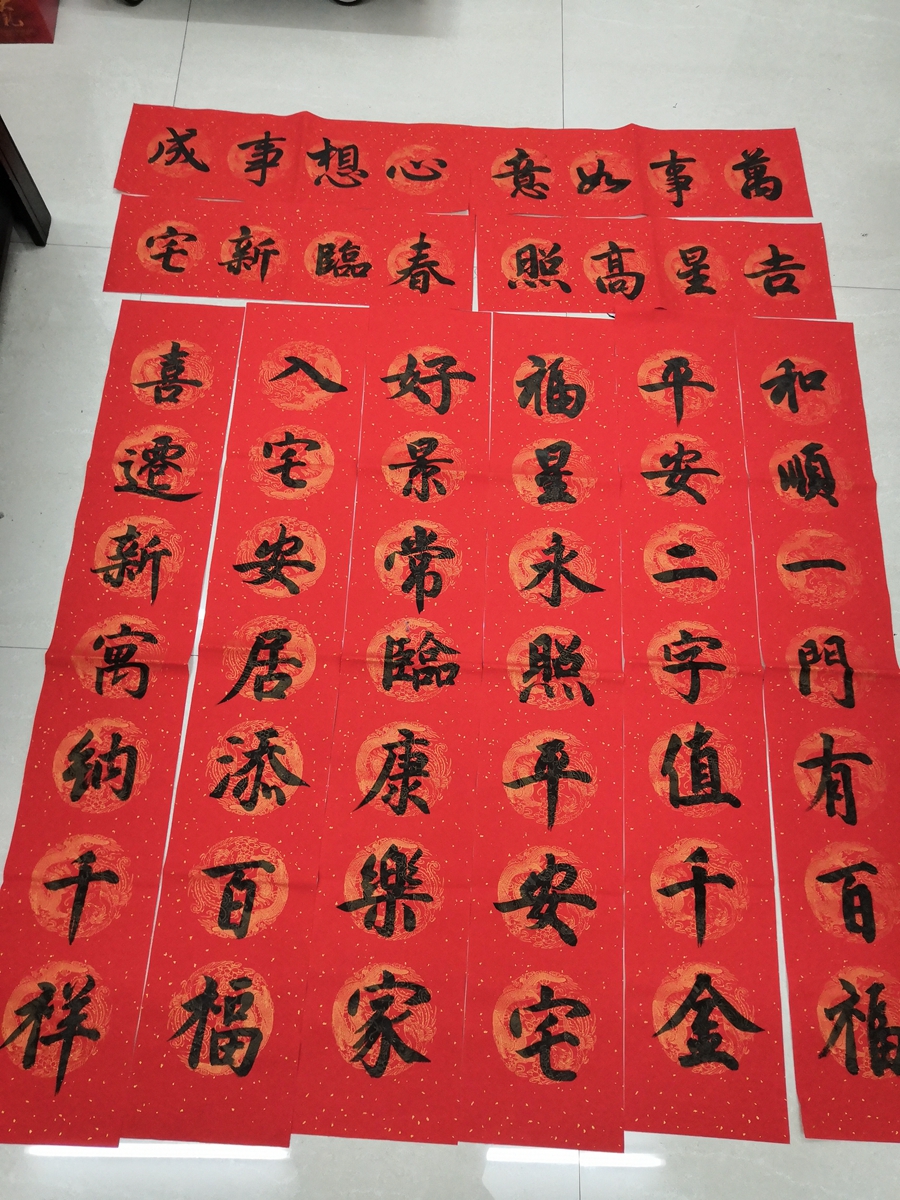 萬事如意
心想事成
吉星高照
春臨新宅
和順一門有百福
平安二字值千金
福星永照平安宅
好景常臨康樂家
入宅安居添百福
喜遷新寓納千祥